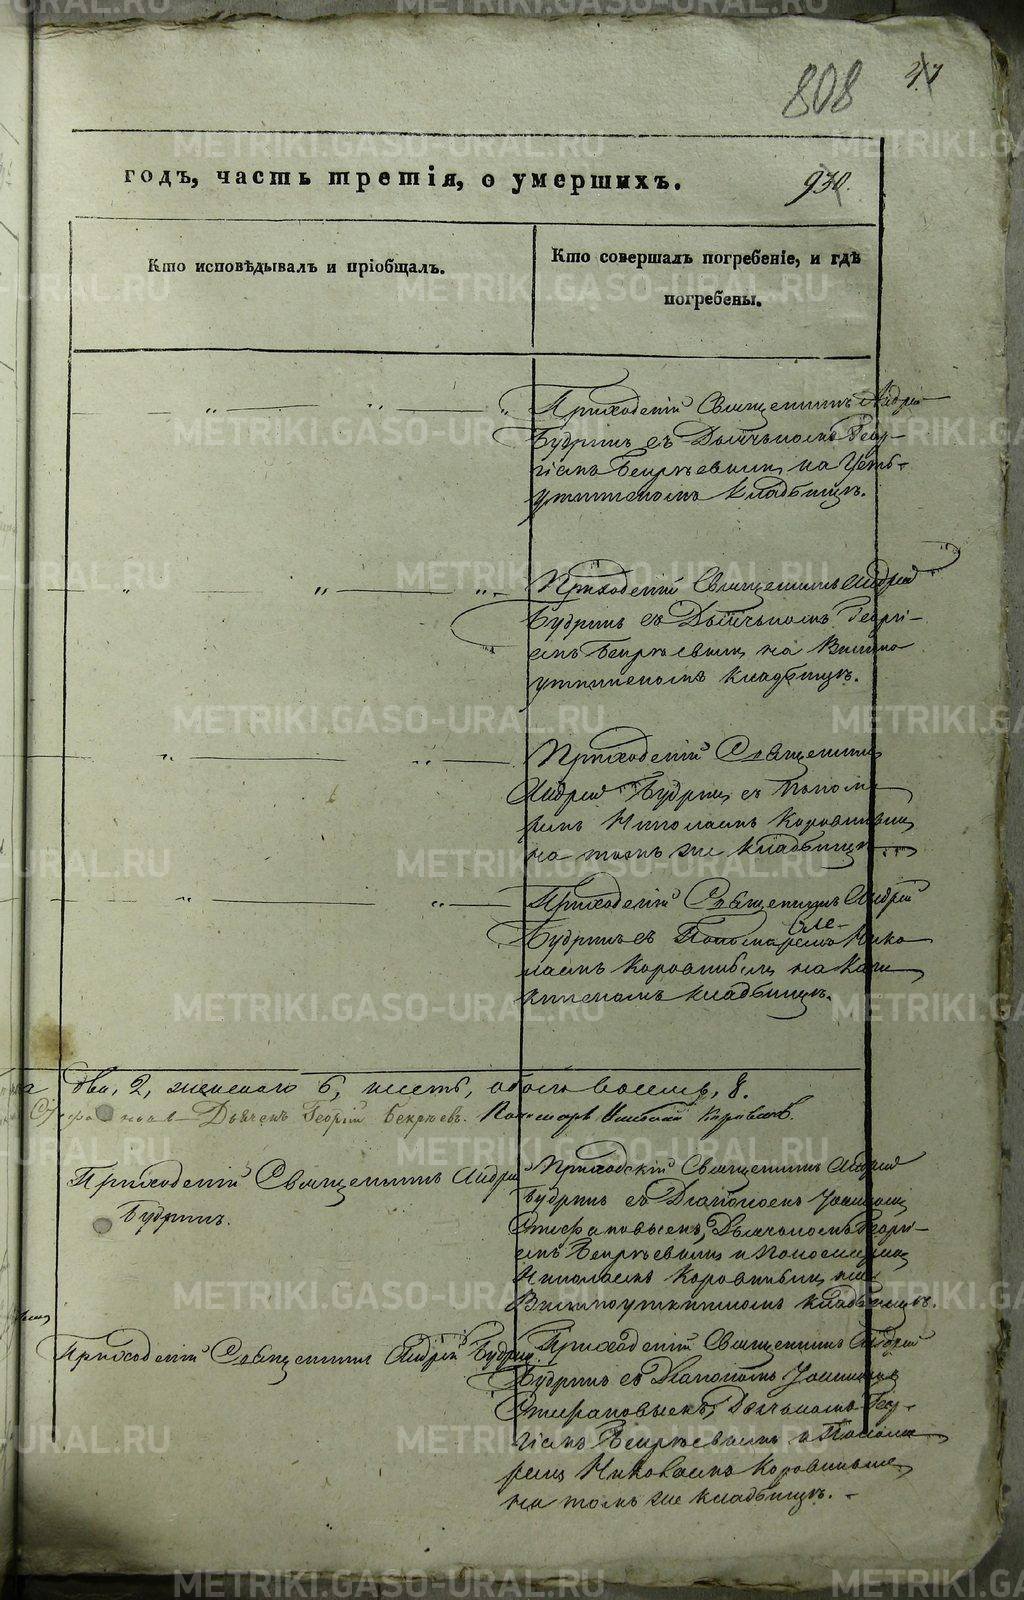 808
930.
годъ, часть третія, о умершихъ.
Кто исповѣдывалъ и пріобщалъ.
Кто совершалъ погребеніе, и гдѣ
погребены.
Приходскій Священникъ Андрей
Будринъ съ Дьячькомъ Геор-
гіемъ Бекрѣевымъ на Усть-
уткинскомъ кладбищѣ.
Приходскій Священникъ Андрей
Будринъ съ Дьячькомъ Георгі-
емъ Бекрѣевымъ на Висимо
уткинскомъ кладбищѣ.
Приходскій Священникъ
Андрей Будринъ съ Понома
ремъ Николаемъ Коровинымъ
на томъ же кладбищѣ
Приходскій Священникъ Андрей
Будринъ съ Пономаремъ Нико
лаемъ Коровинымъ на
кладбищѣ.
два, 2, женскаго 6, шесть, обоего восемь, 8.
Дьячекъ Георгій Бекрюевъ. Пономарь Николай Коровинъ.
Приходскій Священникъ Андрей
Будринъ.
Приходскій Священникъ Андрей
Будринъ съ Діакономъ Іоанномъ
Стефановымъ, Дьячькомъ Георгі-
емъ Бекрѣевымъ и Пономаремъ
Николаемъ Коровинымъ на
Висимоуткинскомъ кладбищѣ.
Приходскій Священникъ Андрей Будринъ.
Приходскій Священникъ Андрей
Будринъ съ Діакономъ Іоанномъ
Стефановымъ, Дьячькомъ Геор-
гіемъ Бекрѣевымъ и Понома
ремъ Николаемъ Коровинымъ
на томъ же кладбищѣ.
METRIKI.GASO-URAL.RU